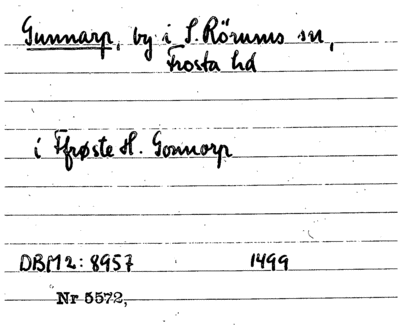 Gunnarp, by i S. Rörums sn,
Frosta hd
i Ffrøste H. Gonnorp
DBM 2: 8957 1499
Nr 5572,